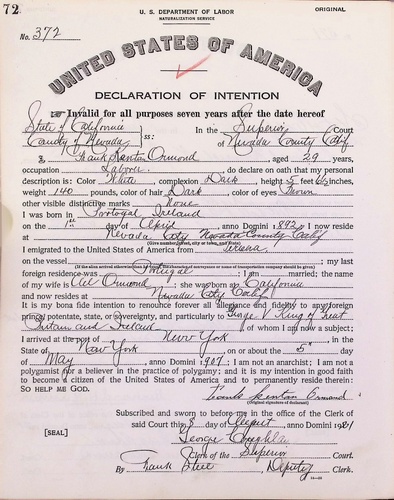 72
U. S. DEPARTMENT OF LABOR
NATURALIZATION SERVICE
ORIGINAL
No. 372
UNITED STATES OF AMERICA
DECLARATION OF INTENTION
☞ Invalid for all purposes seven years after the date hereof
State of California
County of Nevada, ss: In the Superior Court
of Nevada County Calif
I, Frank Ormond, aged 29 years,
occupation Laborer, do declare on oath that my personal
description is: Color White, complexion Dark, height 5 feet inches,
weight 140 pounds, color of hair Dark, color of eyes Brown
other visible distinctive marks None
I was born in Ireland
on the 1st day of April, anno Domini 1892; I now reside
at Nevada City Nevada County Calif
(Give number, street, city or town, and State)
I emigrated to the United States of America from
on the vessel ; my last
(If the alien arrived otherwise than by vessel, the character of conveyance or name of transportation company should be given)
foreign residence was ; I am married; the name
of my wife is Ormond; she was born at California
and now resides at Nevada City Calif
It is my bona fide intention to renounce forever all allegiance and fidelity to any foreign
prince, potentate, state, or sovereignty, and particularly to George V King of Great
Britain and Ireland, of whom I am now a subject;
I arrived at the port of New York, in the
State of New York, on or about the 5" day
of May, anno Domini 1907; I am not an anarchist; I am not a
polygamist nor a believer in the practice of polygamy; and it is my intention in good faith
to become a citizen of the United States of America and to permanently reside therein:
SO HELP ME GOD.
Ormond
(Original signature of declarant)
Subscribed and sworn to before me in the office of the Clerk of
said Court this day of August, anno Domini 1921
[SEAL]
George
Clerk of the Superior Court.
By Frank Deputy Clerk.